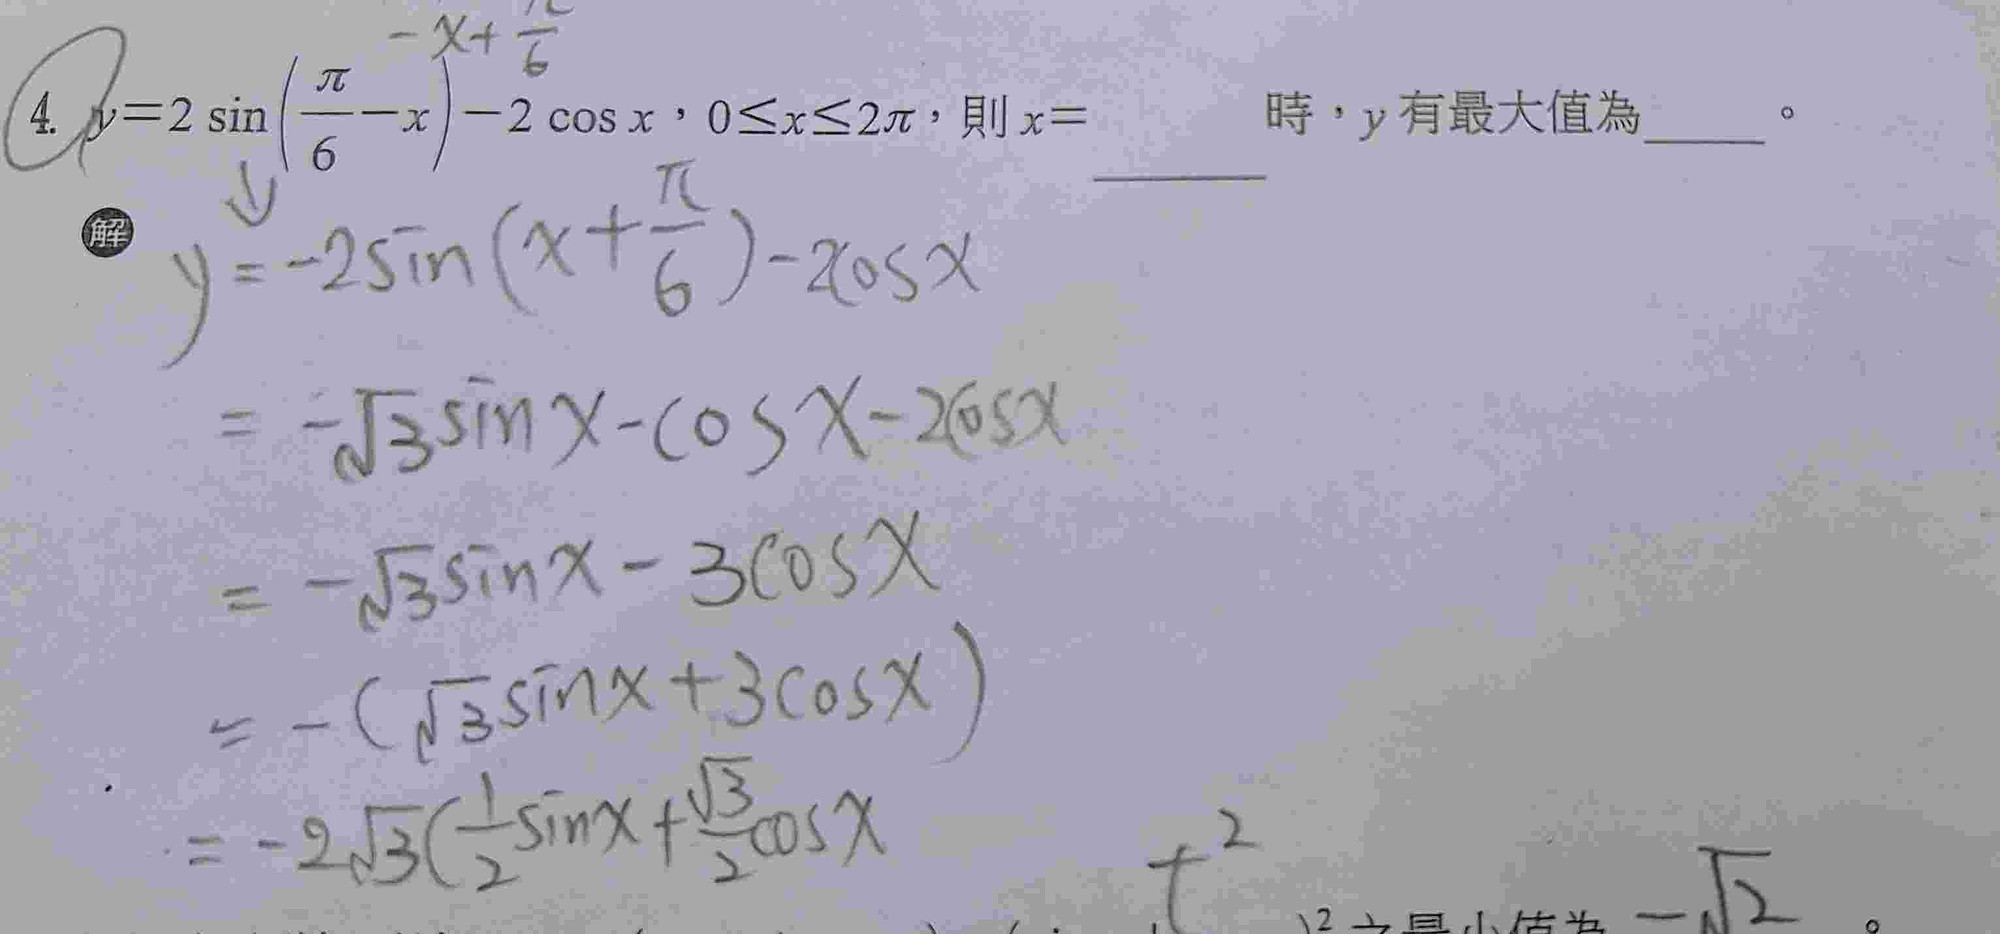 -x+π/6
4. y=2 sin(π/6-x)-2 cos x，0≤x≤2π，則 x=______時，y 有最大值為______。
解
↓
y=-2sin(x+π/6)-2cosx
=-√3sinx-cosx-2cosx
=-√3sinx-3cosx
=-(√3sinx+3cosx)
=-2√3(1/2sinx+√3/2cosx
t²
)² 之最小值為 -√2 。